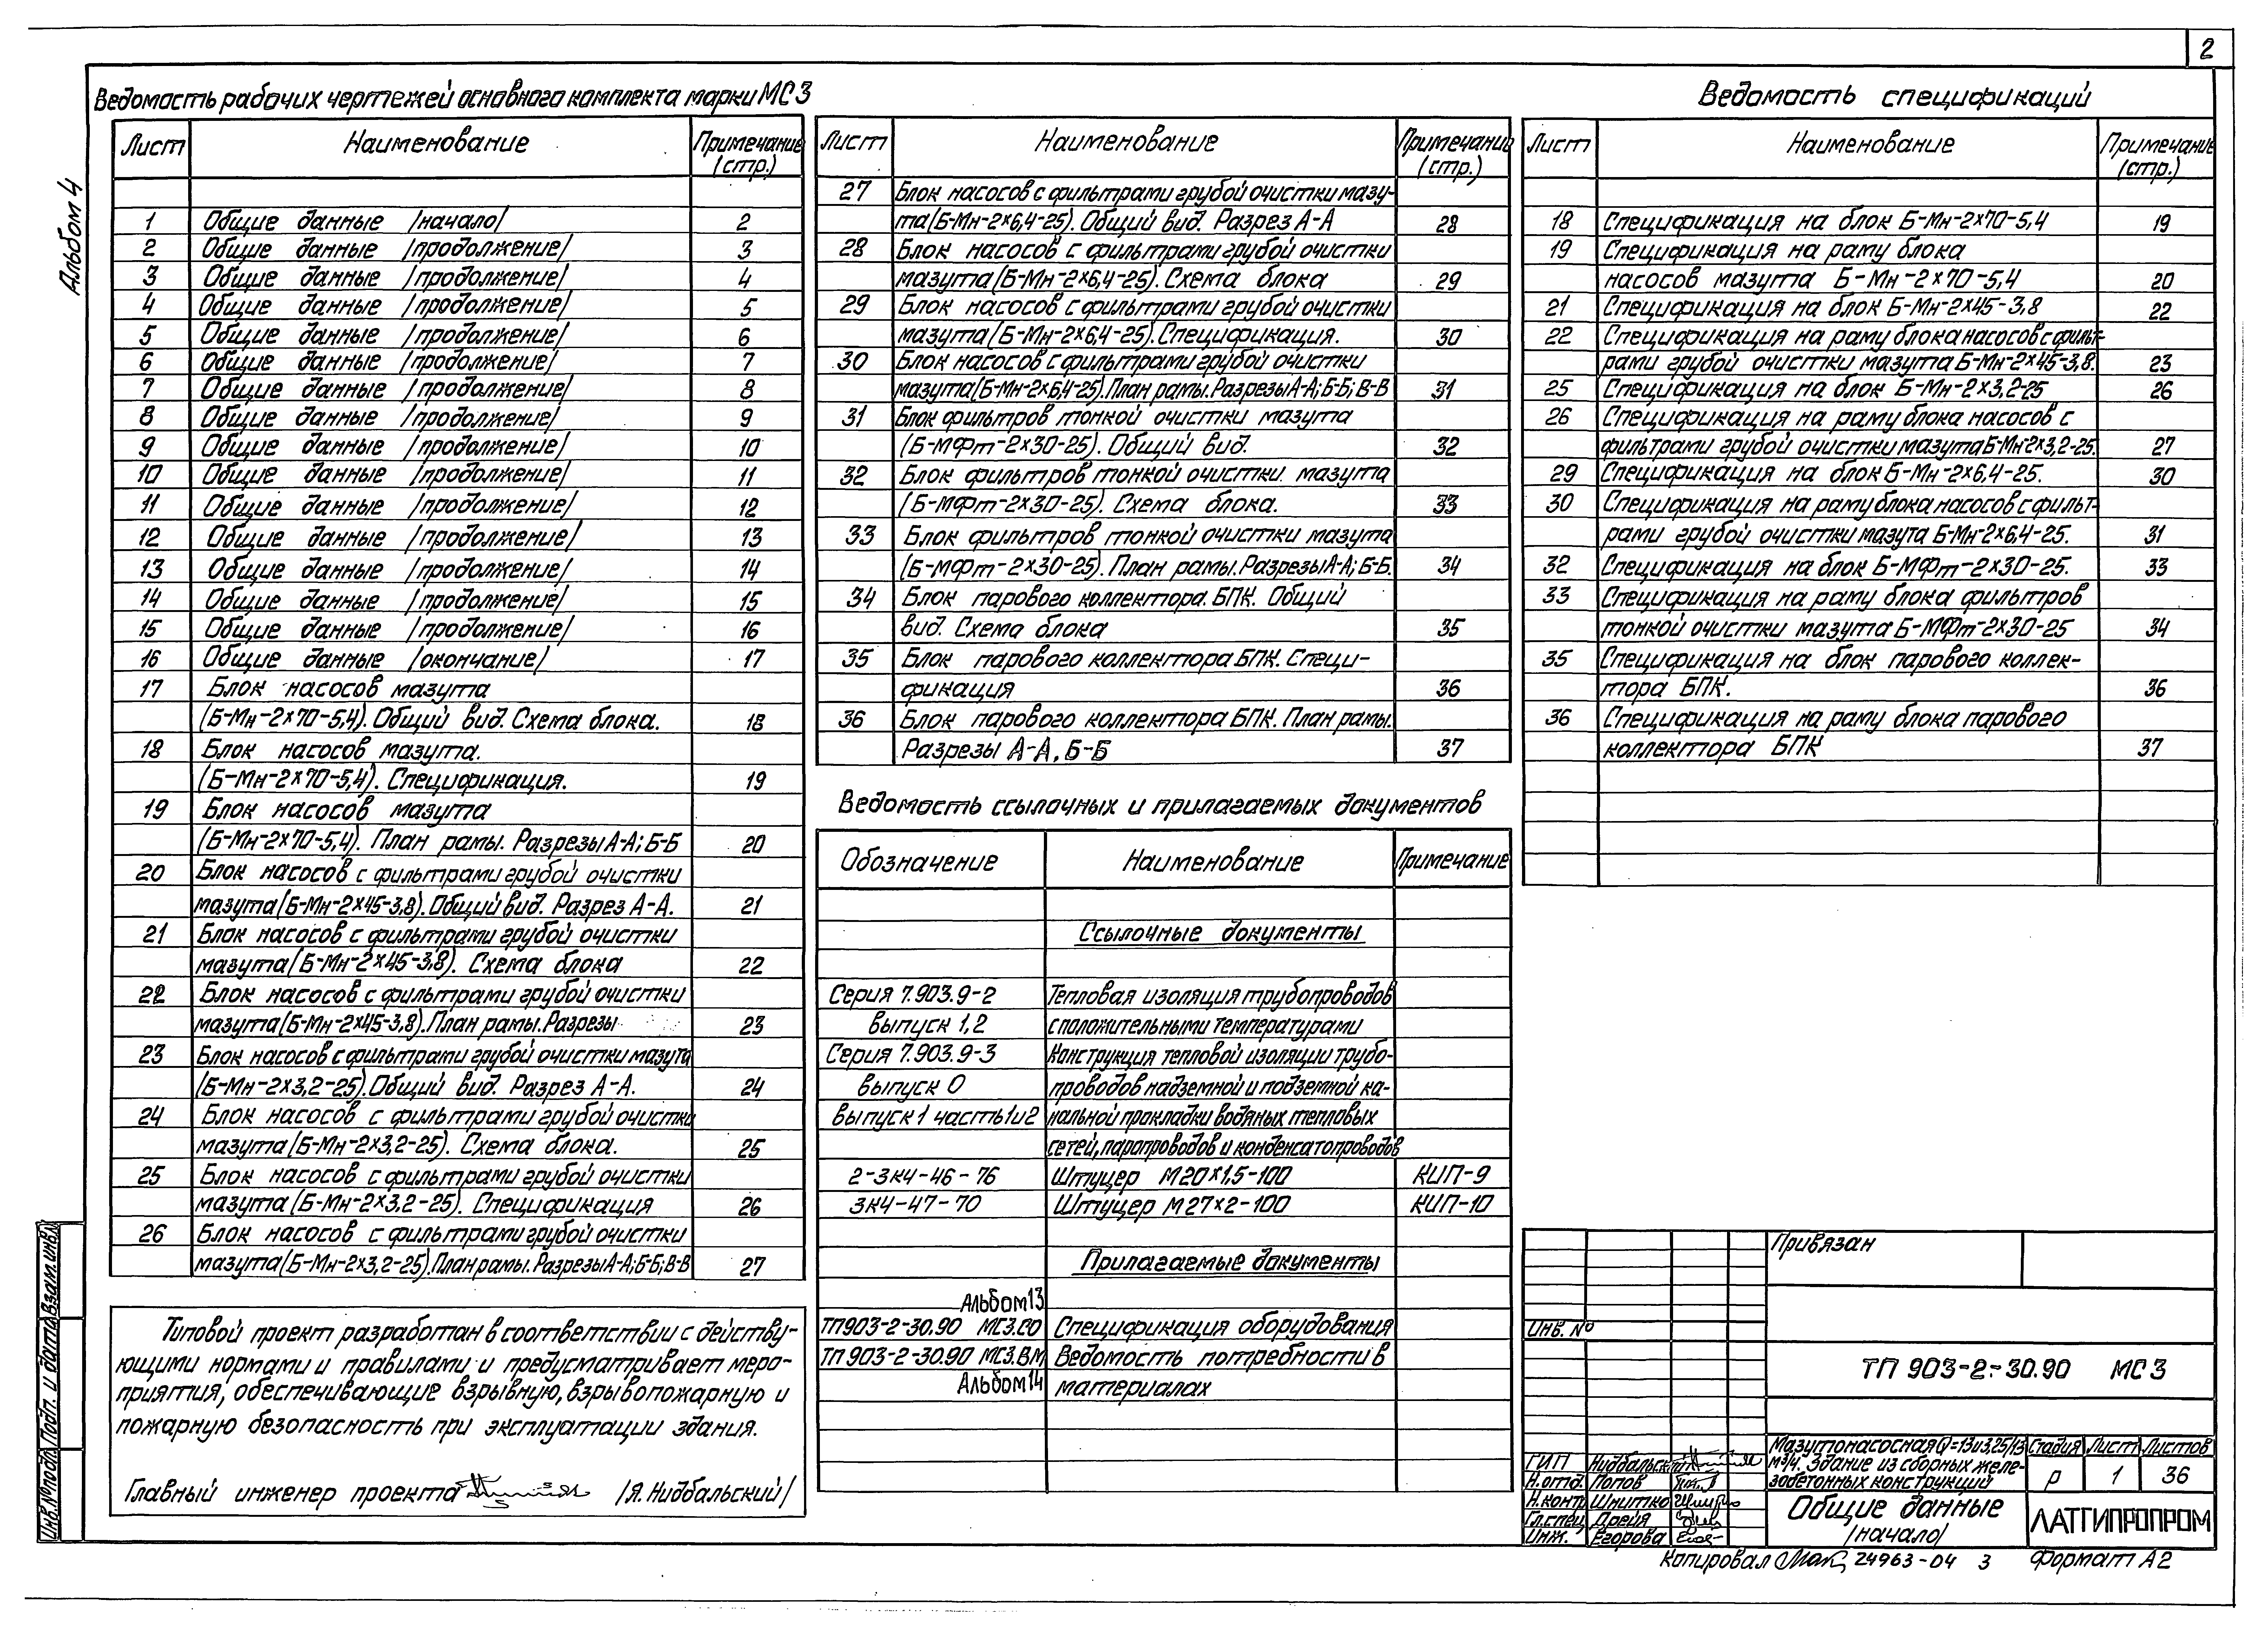 2
Альбом 4
Ведомость рабочих чертежей основного комплекта марки МС3
Лист Наименование Примечание (стр.)
1 Общие данные /начало/ 2
2 Общие данные /продолжение/ 3
3 Общие данные /продолжение/ 4
4 Общие данные /продолжение/ 5
5 Общие данные /продолжение/ 6
6 Общие данные /продолжение/ 7
7 Общие данные /продолжение/ 8
8 Общие данные /продолжение/ 9
9 Общие данные /продолжение/ 10
10 Общие данные /продолжение/ 11
11 Общие данные /продолжение/ 12
12 Общие данные /продолжение/ 13
13 Общие данные /продолжение/ 14
14 Общие данные /продолжение/ 15
15 Общие данные /продолжение/ 16
16 Общие данные /окончание/ 17
17 Блок насосов мазута
(Б-Мн-2×70-5,4). Общий вид. Схема блока. 18
18 Блок насосов мазута.
(Б-Мн-2×70-5,4). Спецификация. 19
19 Блок насосов мазута
(Б-Мн-2×70-5,4). План рамы. Разрезы А-А; Б-Б 20
20 Блок насосов с фильтрами грубой очистки
мазута (Б-Мн-2×45-3,8). Общий вид. Разрез А-А. 21
21 Блок насосов с фильтрами грубой очистки
мазута (Б-Мн-2×45-3,8). Схема блока 22
22 Блок насосов с фильтрами грубой очистки
мазута (Б-Мн-2×45-3,8). План рамы. Разрезы 23
23 Блок насосов с фильтрами грубой очистки мазута
(Б-Мн-2×3,2-25). Общий вид. Разрез А-А. 24
24 Блок насосов с фильтрами грубой очистки
мазута (Б-Мн-2×3,2-25). Схема блока. 25
25 Блок насосов с фильтрами грубой очистки
мазута (Б-Мн-2×3,2-25). Спецификация 26
26 Блок насосов с фильтрами грубой очистки
мазута (Б-Мн-2×3,2-25). План рамы. Разрезы А-А; Б-Б; В-В 27
Типовой проект разработан в соответствии с действу-
ющими нормами и правилами и предусматривает меро-
приятия, обеспечивающие взрывную, взрывопожарную и
пожарную безопасность при эксплуатации здания.
Главный инженер проекта /Я. Нидбальский/
Лист Наименование Примечание (стр.)
27 Блок насосов с фильтрами грубой очистки мазу-
та (Б-Мн-2×6,4-25). Общий вид. Разрез А-А 28
28 Блок насосов с фильтрами грубой очистки
мазута (Б-Мн-2×6,4-25). Схема блока 29
29 Блок насосов с фильтрами грубой очистки
мазута (Б-Мн-2×6,4-25). Спецификация. 30
30 Блок насосов с фильтрами грубой очистки
мазута (Б-Мн-2×6,4-25). План рамы. Разрезы А-А; Б-Б; В-В 31
31 Блок фильтров тонкой очистки мазута
(Б-МФт-2×30-25). Общий вид. 32
32 Блок фильтров тонкой очистки мазута
(Б-МФт-2×30-25). Схема блока. 33
33 Блок фильтров тонкой очистки мазута
(Б-МФт-2×30-25). План рамы. Разрезы А-А; Б-Б. 34
34 Блок парового коллектора БПК. Общий
вид. Схема блока 35
35 Блок парового коллектора БПК. Специ-
фикация 36
36 Блок парового коллектора БПК. План рамы.
Разрезы А-А, Б-Б 37
Ведомость ссылочных и прилагаемых документов
Обозначение Наименование Примечание
Ссылочные документы
Серия 7.903.9-2 Тепловая изоляция трубопроводов
выпуск 1,2 с положительными температурами
Серия 7.903.9-3 Конструкция тепловой изоляции трубо-
выпуск 0 проводов надземной и подземной ка-
выпуск 1 часть 1 и 2 нальной прокладки водяных тепловых
сетей, паропроводов и конденсатопроводов
2-3К4-46-76 Штуцер М20×1,5-100 КИП-9
3К4-47-70 Штуцер М27×2-100 КИП-10
Прилагаемые документы
Альбом 13
ТП 903-2-30.90 МС3.СО Спецификация оборудования
ТП 903-2-30.90 МС3.ВМ Ведомость потребности в
Альбом 14 материалах
Ведомость спецификаций
Лист Наименование Примечание (стр.)
18 Спецификация на блок Б-Мн-2×70-5,4 19
19 Спецификация на раму блока
насосов мазута Б-Мн-2×70-5,4 20
21 Спецификация на блок Б-Мн-2×45-3,8 22
22 Спецификация на раму блока насосов с фильт-
рами грубой очистки мазута Б-Мн-2×45-3,8. 23
25 Спецификация на блок Б-Мн-2×3,2-25 26
26 Спецификация на раму блока насосов с
фильтрами грубой очистки мазута Б-Мн-2×3,2-25. 27
29 Спецификация на блок Б-Мн-2×6,4-25. 30
30 Спецификация на раму блока насосов с фильт-
рами грубой очистки мазута Б-Мн-2×6,4-25. 31
32 Спецификация на блок Б-МФт-2×30-25. 33
33 Спецификация на раму блока фильтров
тонкой очистки мазута Б-МФт-2×30-25 34
35 Спецификация на блок парового коллек-
тора БПК. 36
36 Спецификация на раму блока парового
коллектора БПК 37
Привязан
Инв. №
ТП 903-2-30.90 МС3
ГИП Нидбальский
Н.отд. Попов
Н.контр. Шнитко
Гл.спец. Дрейя
Инж. Егорова
Мазутонасосная Q=13 и 3,25/13
м³/ч. Здание из сборных желе-
зобетонных конструкций
Стадия Лист Листов
Р 1 36
Общие данные
/начало/
ЛАТГИПРОПРОМ
Копировал 24963-04 3 Формат А2
Инв.№подл. Подп. и дата Взам.инв.№